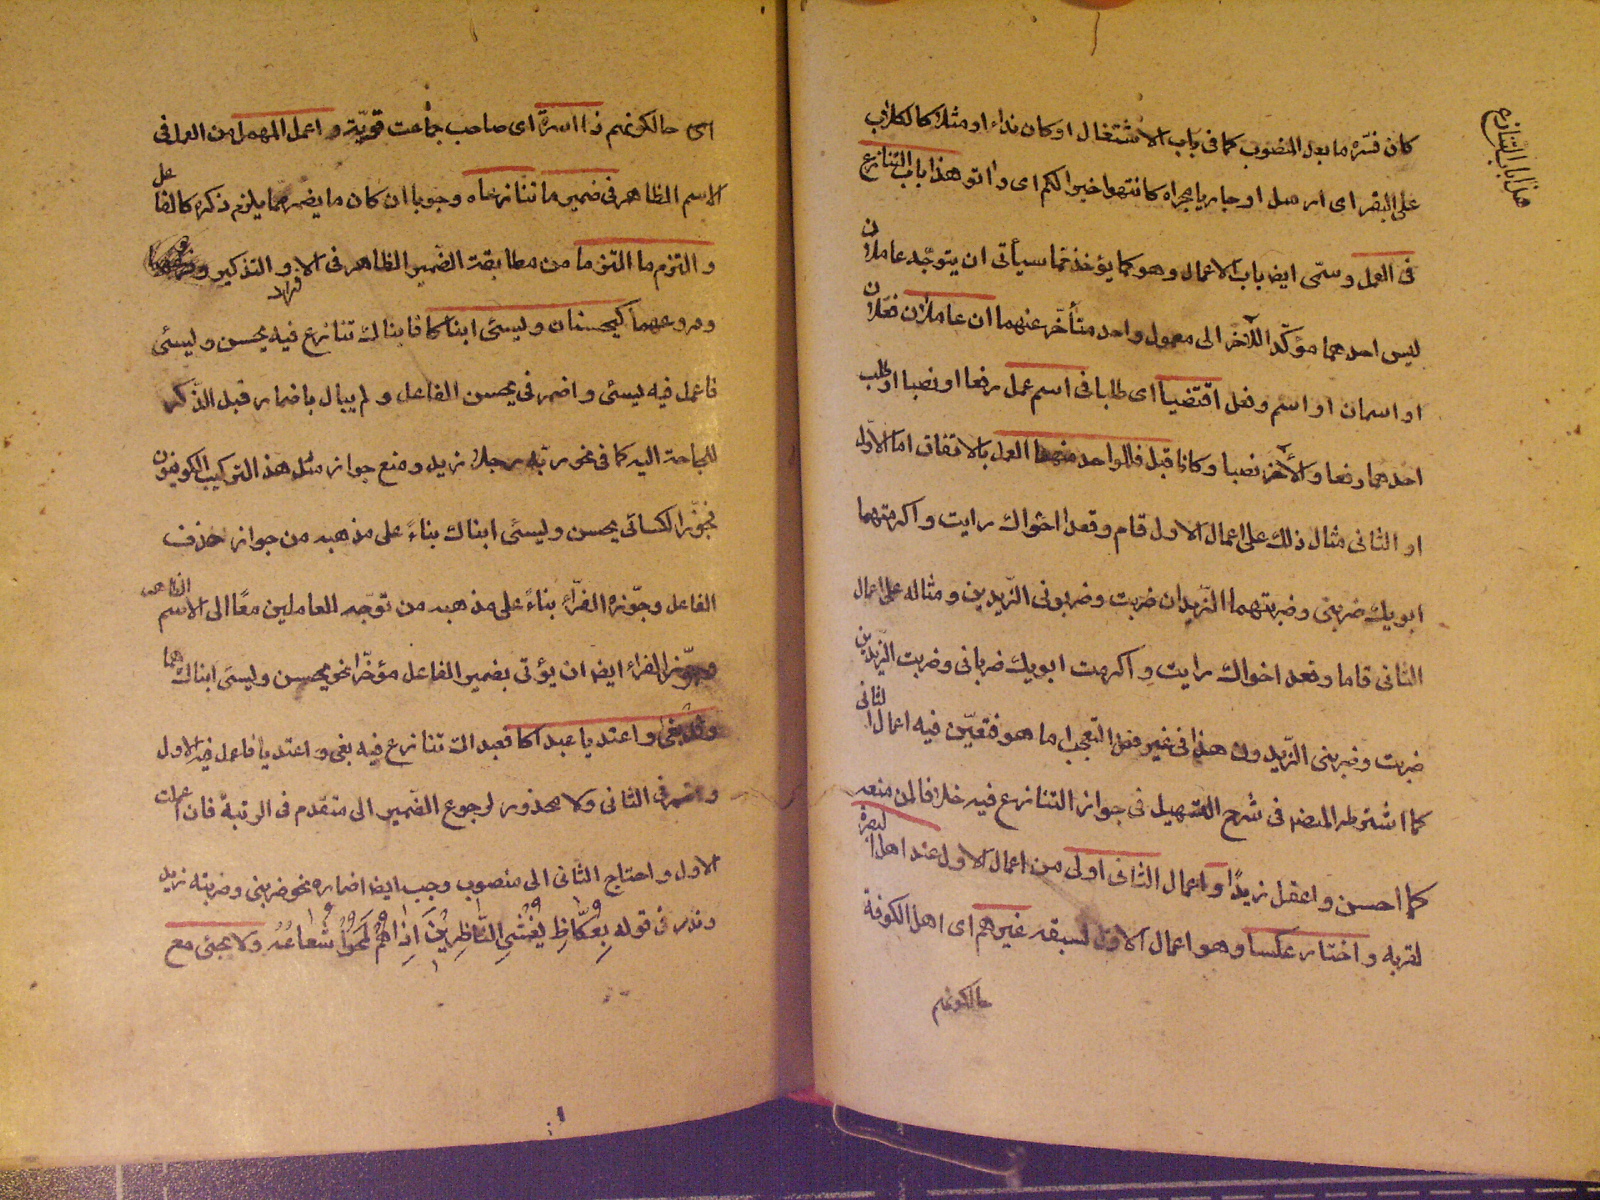 هذا باب التنازع
كان فسّره ما بعد المنصوب كما فى باب الاشتغال او كان نداء او مثلا كالكلاب
على البقر اى ارسل او جاريا مجراه كانتهوا خيرا لكم اى و اتو هذا باب التنازع
فى العمل و سمّى ايض باب الاعمال و هو كما يؤخذ مما سيأتى ان يتوجّه عاملان
ليس احدهما مؤكّدا للآخر الى معمول واحد متأخّر عنهما ان عاملان فعلان
او اسمان او اسم و فعل اقتضيا اى طلبا فى اسم عمل رفعا او نصبا او طلب
احدهما رفعا و الآخر نصبا و كانا قبل فللواحد منهما العمل بالاتفاق اما الاوّل
او الثانى مثال ذلك على اعمال الاول قام و قعدا اخواك رايت و اكرمتهما
ابويك ضربنى و ضربتهما الزّيدان ضربت و ضربونى الزّيدين و مثاله على اعمال
الثانى قاما و قعد اخواك رايت و اكرمت ابويك ضربانى و ضربت الزّيدين
ضربت و ضربنى الزّيدون هذا فى غير فعل التعجب اما هو فتعيّن فيه اعمال الثانى
كما اشترطه المصنف فى شرح التسهيل فى جواز التنازع فيه خلافا لمن منعه
كما احسن و اعقل زيدًا و اعمال الثانى اولى من اعمال الاول عند اهل البصرة
لقربه و اختار عكسا و هو اعمال الاول لسبقه غيرهم اى اهل الكوفة
حالكونهم
اى حالكونهم ذا اسرة اى صاحب جماعت قويّة و اعمل المهمل من العمل فى
الاسم الظاهر فى ضمير ما تنازعاه وجوبا ان كان ما يضمر مما يلزم ذكره كالفاعل
و التزم ما التزما من مطابقة الضمير الظاهر فى الافراد و التذكير و
و فروعهما كيحسنان و يسئى ابناكا فابناك تنازع فيه يحسن و يسئى
فاعمل فيه يسئى و اضمر فى يحسن الفاعل و لم يبال باضمار قبل الذّكر
للحاجة اليه كما فى نحو ربّه رجلا زيد و منع جواز مثل هذ التركيب الكوفيون
فجوّز الكسائى يحسن و يسئى ابناك بناءً على مذهبه من جواز حذف
الفاعل و جوّزه الفرّاء بناءً على مذهبه من توجّه العاملين معًا الى الاسم الظاهر
و جوّز الفراء ايض ان يؤتى بضمير الفاعل مؤخّرا نحو يحسن و يسئى ابناك هما
و قد بغى و اعتديا عبداكا فعبداك تنازع فيه بغى و اعتديا فاعمل فيه الاول
و اضمر فى الثانى و لا محذور لرجوع الضمير الى متقدم فى الرتبة فان اعملت
الاول و احتاج الثانى الى منصوب وجب ايض اضماره نحو ضربنى و ضربته زيد
و ندر فى قوله بِعُكَاظِ يُعْشِى النَّاظِرِينَ اِذَا هُمْ لَمَحُوا شُعَاعُهُ و لا يجئ مع